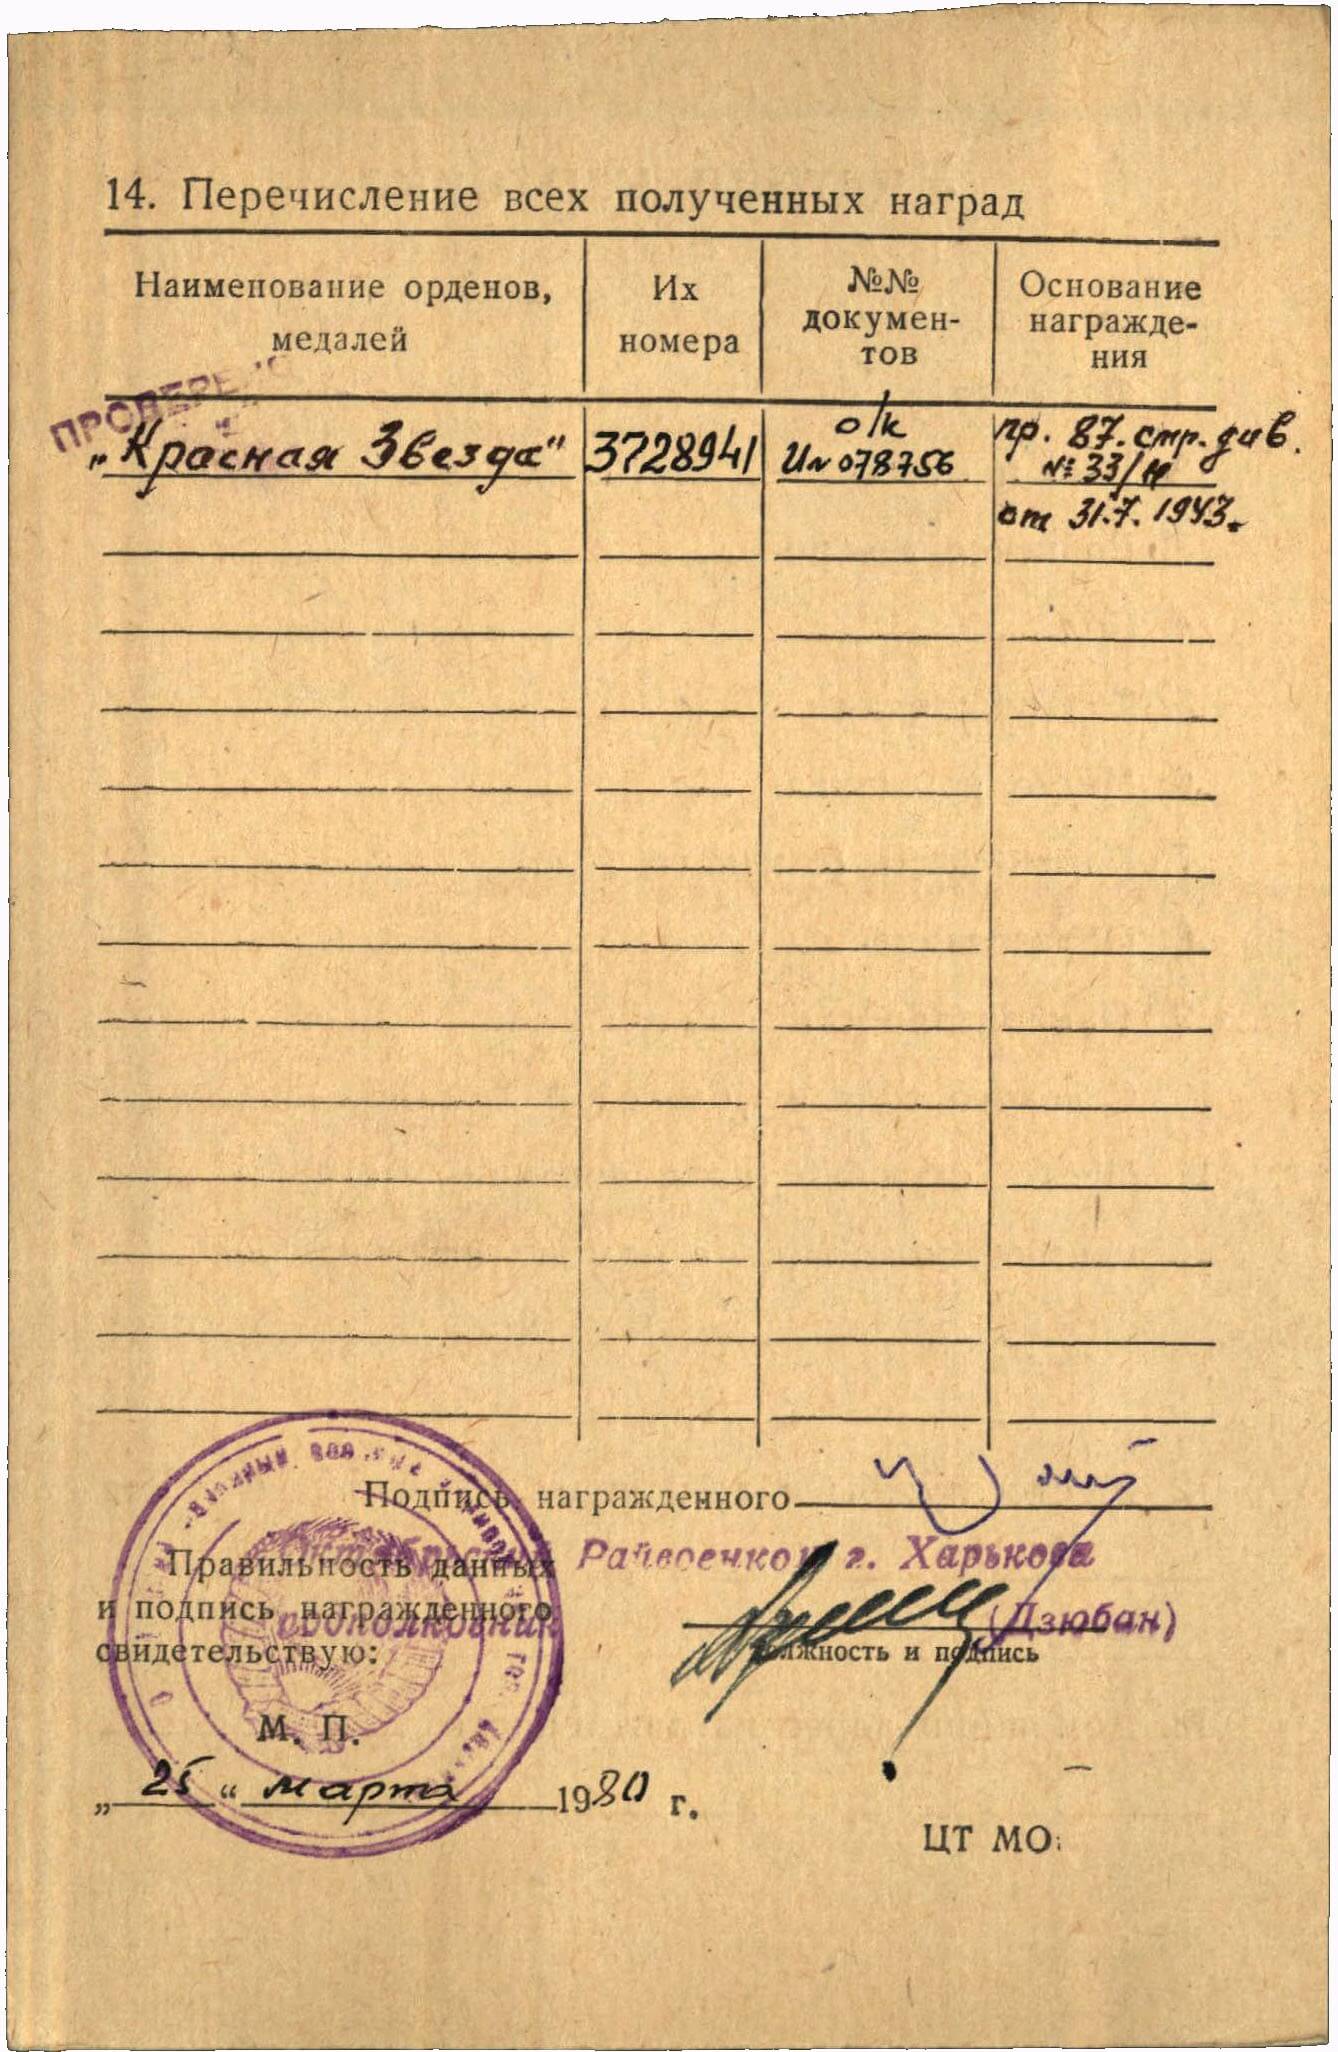 14. Перечисление всех полученных наград
Наименование орденов,
медалей
Их
номера
№№
докумен-
тов
Основание
награжде-
ния
ПРОВЕРЕНО
„Красная Звезда“
3728941
о/к
И№078756
пр. 87. стр. див.
№ 33/н
от 31.7. 1943.
Подпись награжденного
Октябрьский Райвоенком г. Харькова
Правильность данных
и подпись награжденного
свидетельствую:
подполковник
(Дзюбан)
должность и подпись
М. П.
„ 25 “ марта 1980 г.
ЦТ МО.